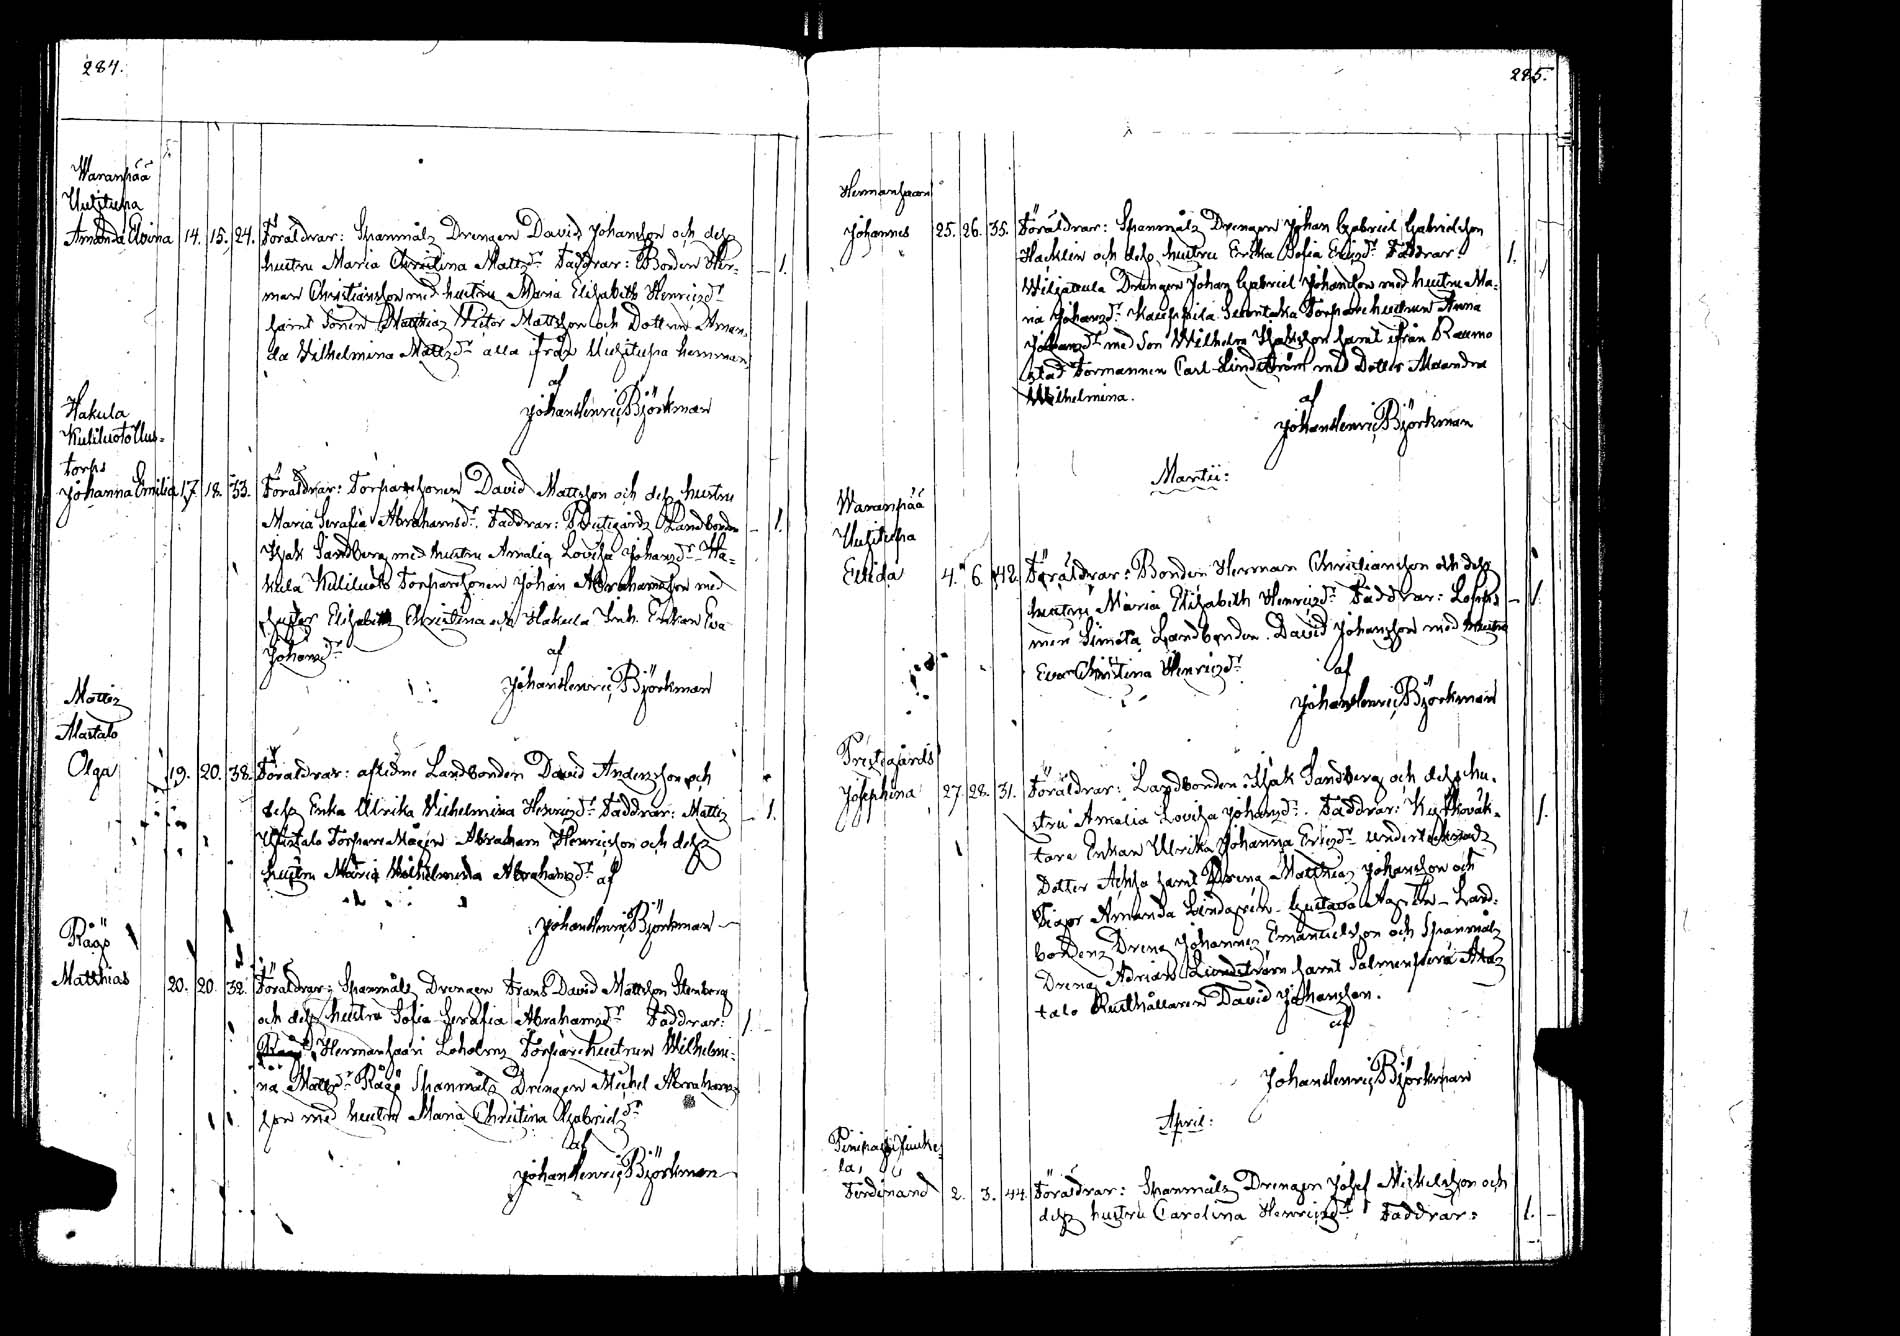 284.
Waranpää
Uusitupa
Amanda Elvina 14. 15. 24. Föräldrar: Spanmåls Drengen David Johansson och dess
hustru Maria Christina Mattsdr Faddrar: Bonden Her- 1.
man Christiansson med hustru Maria Elisabeth Henricsdr
samt Sonen Matthias Victor Mattsson och Dottren Aman-
da Wilhelmina Mattsdr alla ifrån Uusitupa hemman
af
Johan Henric Björkman
Hakula
torps
Johanna Emilia 17. 18. 33. Föräldrar: Torparesonen David Mattsson och dess hustru
Maria Serafia Abrahamsdr. Faddrar: Prestgårds Landbonden 1.
Isak Sandberg med hustru Amalia Lovisa Johansdr Ha-
kula Kuliluoto Torparesonen Johan Abrahamsson med
syster Elisabeth Christina och Hakula Inh. Enkan Eva
Johansdr
af
Johan Henric Björkman
Mattis
Olga 19. 20. 38. Föräldrar: aflidne Landbonden David Andersson och
dess Enka Ulrika Wilhelmina Henricsdr Faddrar: Mattis 1.
Torpare Mågen Abraham Henricsson och dess
hustru Maria Wilhelmina Abrahamsdr af
Johan Henric Björkman
Rägö
Matthias 20. 20. 32. Föräldrar: Spanmåls Drengen Frans David Mattsson Stenberg
och dess hustru Sofia Serafia Abrahamsdr Faddrar: 1.
Hermansaari Loholms Torparehustrun Wilhelmi-
na Mattsdr Rägö Spanmåls Drengen Michel Abrahams-
son med hustru Maria Christina Gabrielsdr
af
Johan Henric Björkman
285.
Hermansaari
Johannes 25. 26. 35. Föräldrar: Spanmåls Drengen Johan Gabriel Gabrielsson
Hacklin och dess hustru Erika Sofia Ericsdr Faddrar: 1.
Drengen Johan Gabriel Johansson med hustru Ma-
ria Johansdr Kauppila Torparehustrun Anna
Johansdr med Son Wilhelm Isaksson samt ifrån Raumo
stad Formannen Carl Lindström med Dotter
Wilhelmina.
af
Johan Henric Björkman
Martii:
Waranpää
Uusitupa
Elvida 4. 6. 42. Föräldrar: Bonden Herman Christiansson och dess
hustru Maria Elisabeth Henricsdr Faddrar: 1.
Simola Landbonden David Johansson med hustru
Eva Christina Henricsdr
af
Johan Henric Björkman
Prestegårds
Josephina 27. 28. 31. Föräldrar: Landbonden Isak Sandberg och dess hu-
stru Amalia Lovisa Johansdr. Faddrar: Kyrkowäk- 1.
tare Enkan Ulrika Johanna Ericsdr undertecknads
Dotter samt Dreng Matthias Johansson och
Pigor Amanda Lindgrén Gustava Land-
bondens Dreng Johannes Emanuelsson och Spanmåls
Dreng Adrian Lindström samt
talo Rusthållaren David Johansson.
af
Johan Henric Björkman
April:
la,
Ferdinand 2. 3. 44. Föräldrar: Spanmåls Drengen Josef Mickelsson och
dess hustru Carolina Henricsdr Faddrar: 1.